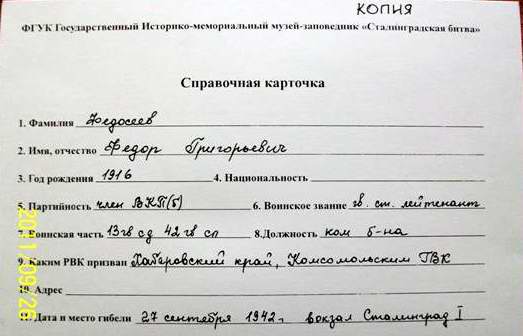 КОПИЯ
ФГУК Государственный Историко-мемориальный музей-заповедник «Сталинградская битва»
Справочная карточка
1. Фамилия Федосеев
2. Имя, отчество Федор Григорьевич
3. Год рождения 1916 4. Национальность
5. Партийность член ВКП(б) 6. Воинское звание гв. ст. лейтенант
7. Воинская часть 13 гв сд 42 гв сп 8.Должность ком б-на
9. Каким РВК призван Хабаровский край, Комсомольским ГВК
10. Адрес
11. Дата и место гибели 27 сентября 1942, вокзал Сталинград I
2011/09/26